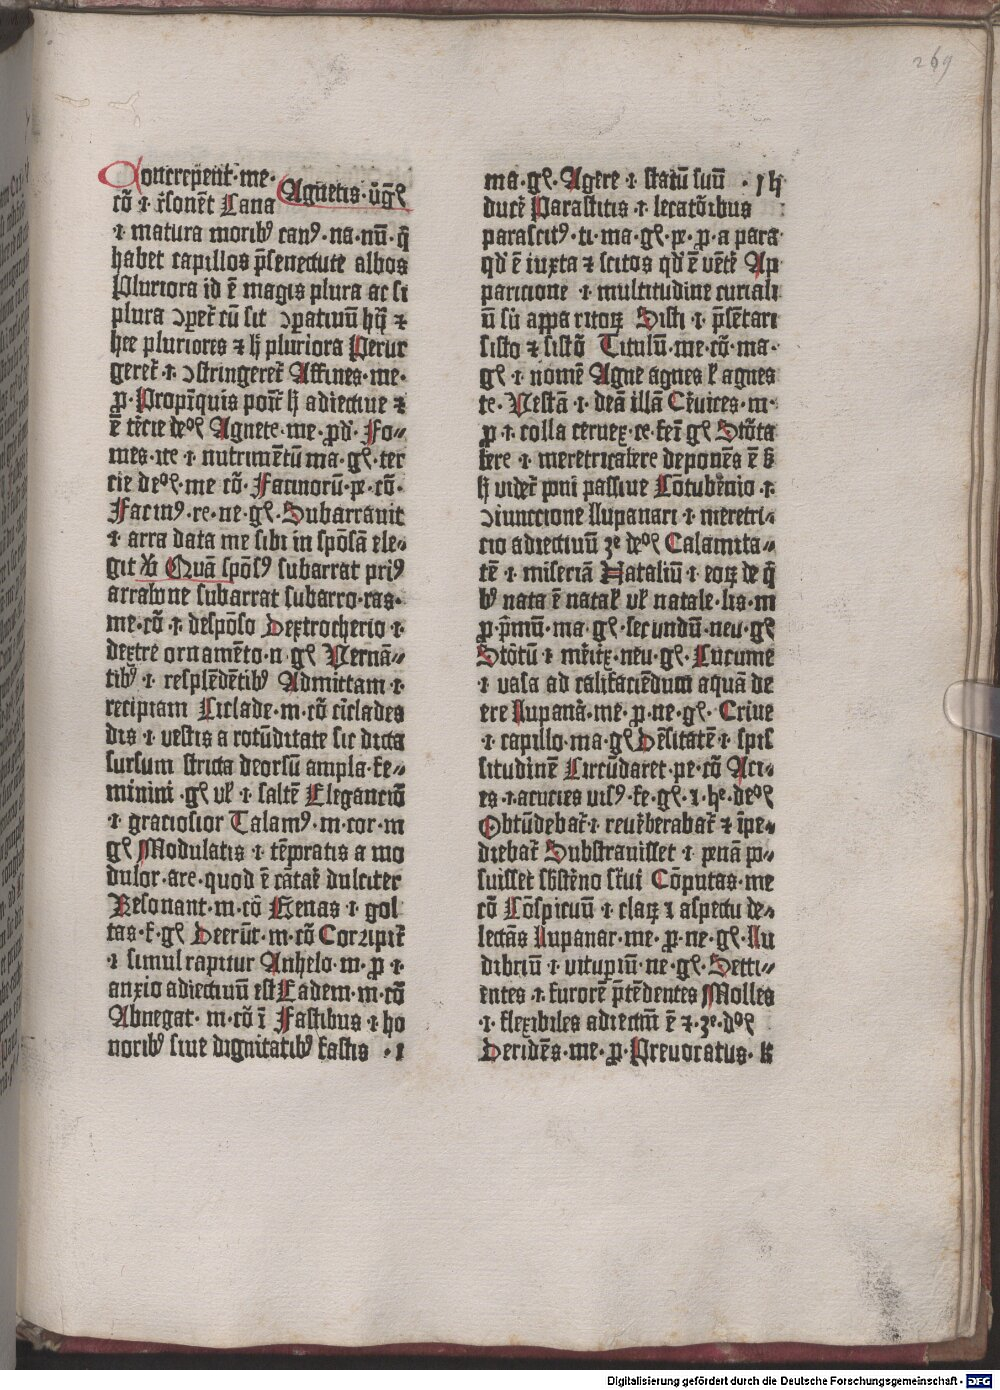 269
Concrepent·me·
Agnetis·v̄gͥ
cō·ı·r̄sonēt Cana
·ı· matura moribꝰ canꝰ·na·nū·q̄
habet capillos p̄senectute albos
Pluriora id ē magis plura ac si
plura ↄꝑet̄ cū sit ↄꝑatiuū hꝗ̄ ⁊
hec pluriores ⁊ h̄ pluriora Perur
geret̄·ı·ↄstringeret̄ Affines·me·
ꝑ·Propīquis pōit h̄ adiectiue ⁊
ē t̄cie deᵒꝭ Agnete·me·ꝓd̄·Fo⸗
mes·ite·ı·nutrimētū ma·gꝭ·ter
cie deᵒꝭ·me cō·Facinorū·ꝑ·cō·
Facinꝰ·re·ne·gꝭ·Subarrauit
·ı·arra data me sibi in spōsā ele⸗
git Quā spōsꝰ subarrat priꝰ
arrabone subarrat subarro·ras·
me·cō·ı·despōso Dextrocherio·ı·
dextre ornamēto·n·gꝭ Vernā⸗
tibꝰ·ı·resplēdētibꝰ Admittam·ı·
recipiam Ciclade·m·cō ciclades
dis·ı·vestis a rotūditate sic dicta
sursum stricta deorsū ampla·fe⸗
minini·gꝭ vl̄·ı·saltē Eleganciō
·ı·graciosior Talamꝰ·m·cor·m
gꝭ Modulatis·ı·tēꝑatis a mo
dulor·are·quod ē cātar̄ dulciter
Resonant·m·cō Genas·ı·gol
tas·f·gꝭ Deerūt·m·cō Corripit̄
·ı·simul rapitur Anhelo·m·ꝑ·ı·
anxio adiectiuū est Eadem·m·cō
Abnegat·m·cō ī Fastibus·ı·ho
noribꝰ siue dignitatibꝰ fastis·ı
ma·gꝭ·Agere·ı·statū suū
ducer̄ Parasitis·ı·leccatōibus
parascitꝰ·ti·ma·gꝭ·ꝑ·ꝑ·a para
qd̄ ē iuxta ⁊ scitos qd̄ ē vēter Ap
paricione·ı·multitudine curiali
ū siū apparitoꝝ Sisti·ı·p̄sētari
sisto ⁊ sistō Titulū·me·cō·ma·
gꝭ·ı·nomē Agne agnes l̄ agnes
te·Vestā·ı·deā illā Ceruices·m·
ꝑ·ı·colla ceruex·ce·fei gꝭ Scōta
fere·ı·meretricafere deponēs ē
h̄ vider̄ poni passiue Cōtub̄nio·ı·
ↄiunccione Lupanari·ı·meretri⸗
cio adiectiuū deᵒꝭ Calamita⸗
tē·ı·miseriā Nataliū·ı·eoꝝ de q̄
bꝰ nata ē natal̄ vl̄ natale·lis·m
ꝑ·p̄mū·ma·gꝭ·secundū·neu·gꝭ
Scōtū·ı·meītx̄·neu·gꝭ·Lucume
·ı·vasa ad calfaciēdum aquā de
ere Lupanā·me·ꝑ·ne·gꝭ·Crine
·ı·capillo·ma·gꝭ Dēsitatē·ı·spis
situdinē Circūdaret·ꝑe·cō Aci⸗
es·ı·acucies visꝰ·fe·gꝭ
Obtūdebat̄·ı·reuerberabat̄ ⁊ īpe⸗
diebat̄ Substrauisset·ı·penā po⸗
suisset Cōputas·me
cō Cōspicuū·ı·claꝝ ı aspectu de⸗
lectās Lupanar·me·ꝑ·ne·gꝭ·Lu
dibriū·ı·vituꝑiū·ne·gꝭ·Secti⸗
entes·ı·furorē p̄tēdentes Molles
·ı·flexibiles adiectū ē
Deridēs·me·ꝑ·Preuocatus·
Digitalisierung gefördert durch die Deutsche Forschungsgemeinschaft - DFG